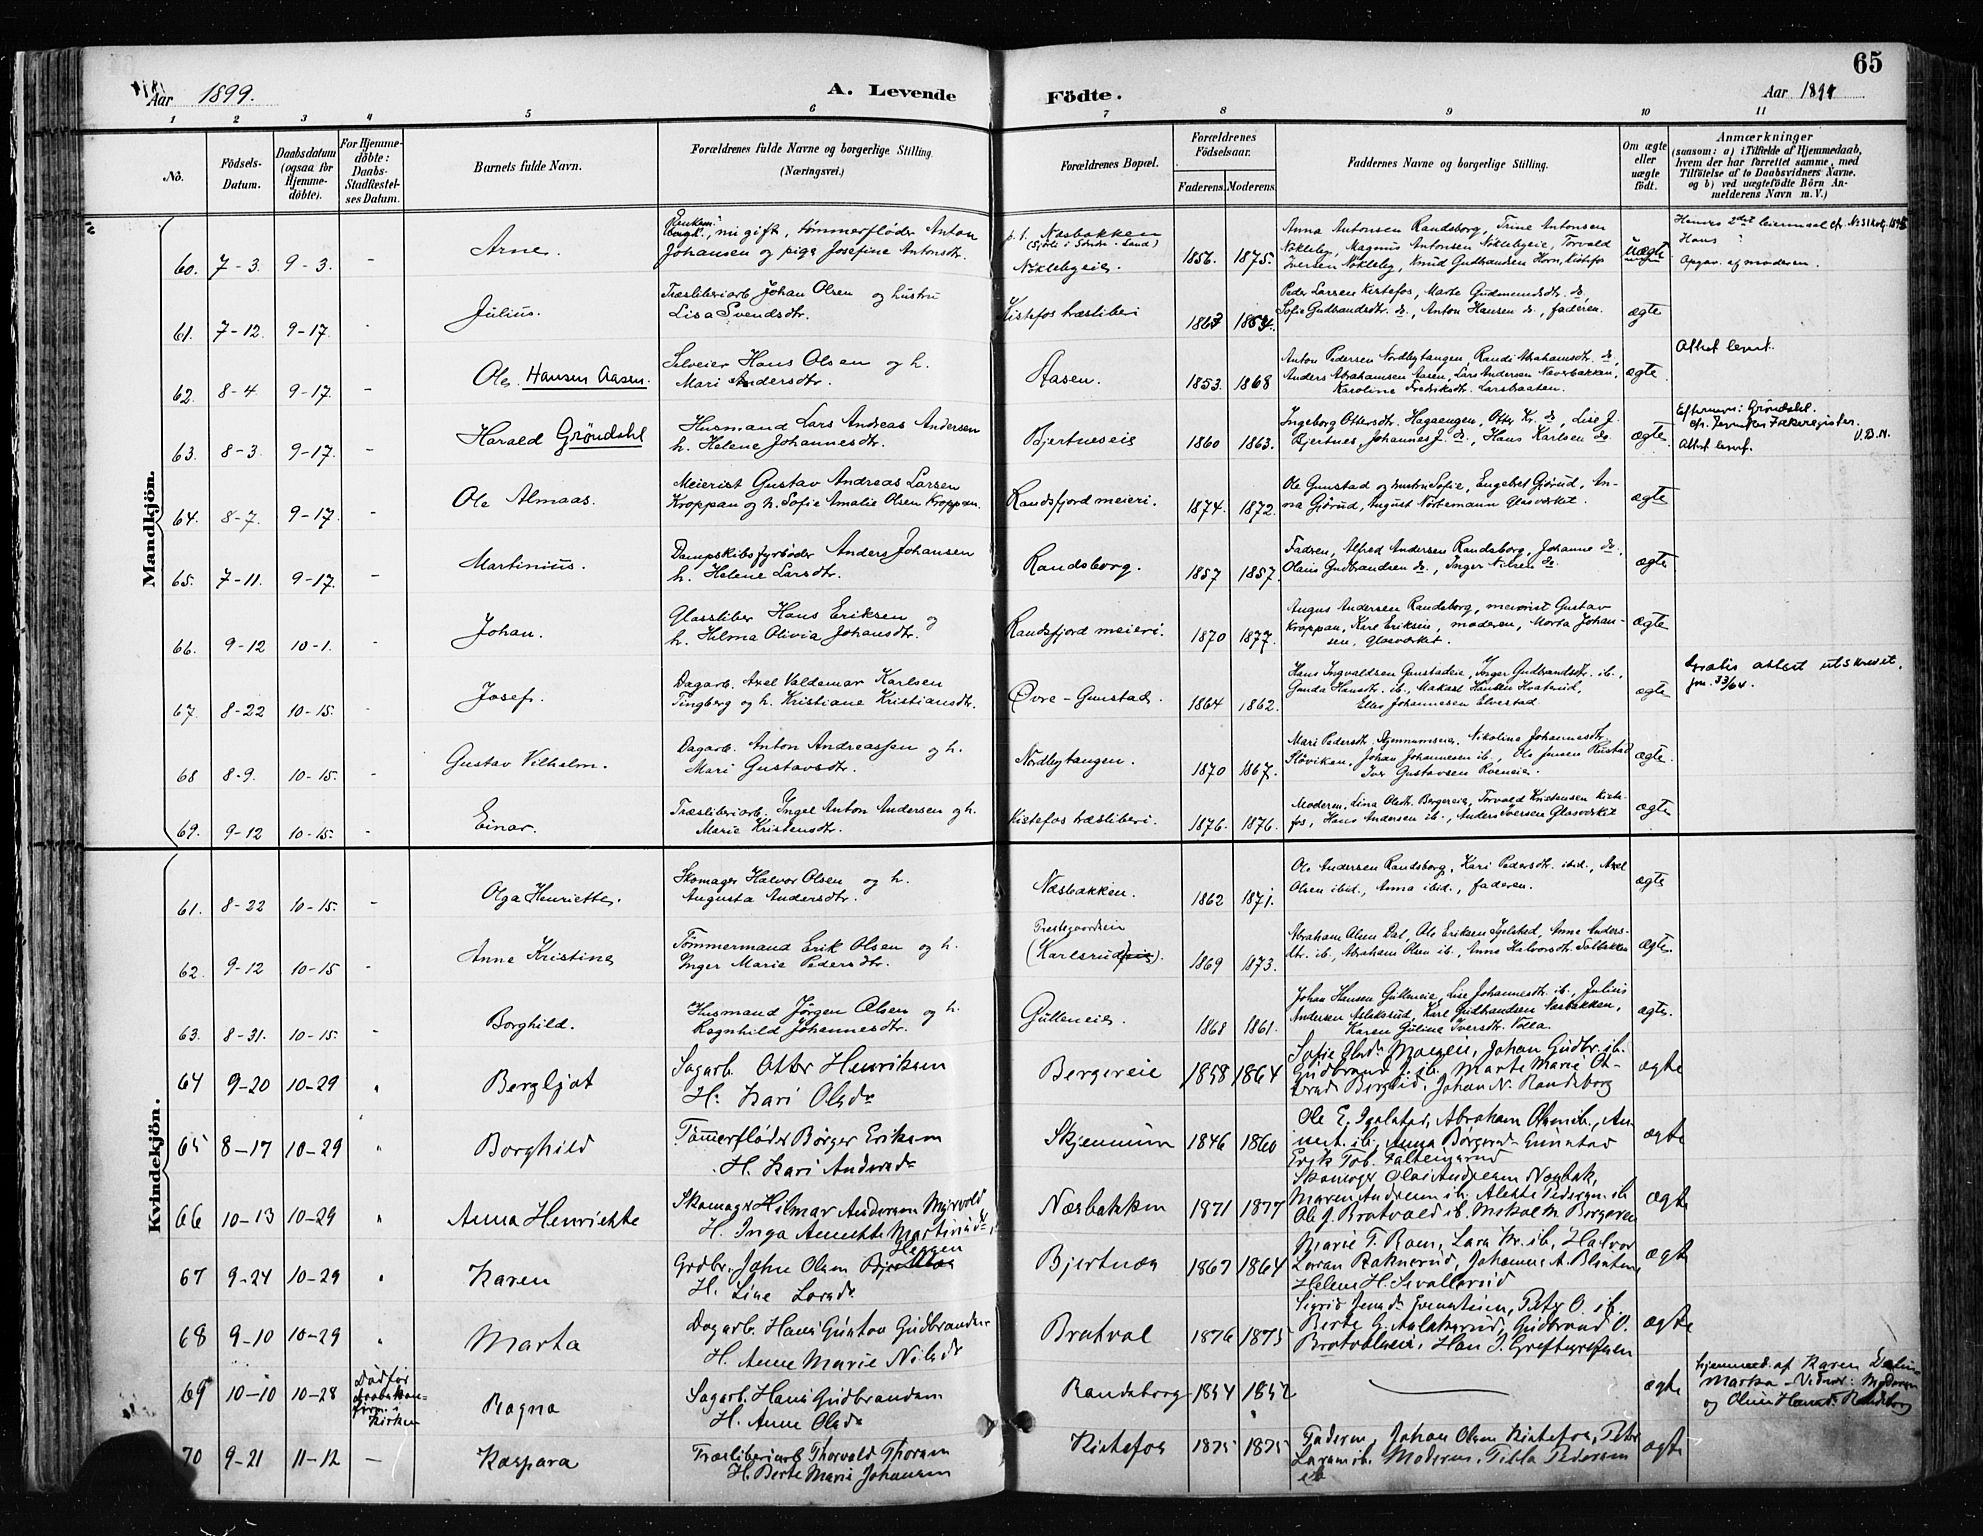 65
Aar 1899.
A. Levende Födte.
Aar 1899
1 2 3 4 5 6 7 8 9 10 11
No.
Födsels-Datum.
Daabsdatum (ogsaa for Hjemmedöbte).
For Hjemmedöbte: Daabs-Stadfestelses Datum.
Barnets fulde Navn.
Forældrenes fulde Navne og borgerlige Stilling. (Næringsvei.)
Forældrenes Bopæl.
Forældrenes Födselsaar.
Faderens. Moderens.
Faddernes Navne og borgerlige Stilling.
Om ægte eller uægte födt.
Anmærkninger
(saasom: a) i Tilfælde af Hjemmedaab, hvem der har forrettet samme, med Tilföielse af to Daabsvidners Navne, og b) ved uægtefödte Börn Anmelderens Navn m. V.)
Mandkjön.
60. 7-3. 9-3. - Arne. ugift, tömmerflöder Anton
Johansen og pige Josefine Antonsdtr.
p. t. Næsbakken
Nöklebyeie. 1856. 1875.
Anna Antonsen Randsborg, Trine Antonsen
Nökleby, Magnus Antonsen Nöklebyeie, Torvald
Iversen Nökleby, Knud Gudbrandsen Horn, Kistefos
uægte
Hans
Opgav. af moderen.
61. 7-12. 9-17. - Julius. Træsliberiarb. Johan Olsen og hustru
Lisa Svendsdtr.
Kistefos træsliberi 1863 1854.
Peder Larsen Kistefos, Marte Gudmundsdtr. do,
Sofie Gudbrandsdtr. do, Anton Hansen do, faderen.
ægte
62. 8-4 9-17. - Ole Hansen Aasen. Selveier Hans Olsen og h.
Mari Andersdtr.
Aasen. 1853. 1868
Anton Pedersen Nordbytangen, Randi Abrahamsdtr. do,
Anders Abrahamsen Aasen, Lars Andersen Næverbakken,
Karoline Fredriksdtr. Larsbraaten.
ægte.
Attest levert.
63. 8-3. 9-17. - Harald Gröndahl Husmand Lars Andreas Andersen
h. Helene Johannesdtr.
Bjertneseie 1860 1863.
Ingeborg Ottersdtr. Hagaengen, Otter Kr. do, Lise J.
Bjertnes, Johannes J. do, Hans Karlsen do.
ægte.
Efternavn: Gröndahl.
Attest levert. V.B.N.
64. 8-7. 9-17. - Ole Almaas. Meierist Gustav Andreas Larsen
Kroppan og h. Sofie Amalie Olsen Kroppan.
Randsfjord meieri. 1874. 1872.
Ole Gunstad og hustru Sofie, Engebret Gjörud, An-
na Gjörud, August Nörtemann Glasverket.
ægte
65. 7-11. 9-17. - Martinius. Dampskibsfyrböder Anders Johansen
h. Helene Larsdtr.
Randsborg. 1857 1857.
Fadren, Alfred Andersen Randsborg, Johanne do,
Olaus Gudbrandsen do, Inger Nilsen do
ægte
66. 9-12 10-1. - Johan. Glassliber Hans Eriksen og
h. Hilma Olivia Johansdtr.
Randsfjord meieri. 1870 1877.
Angus Andersen Randsborg, meierist Gustav
Kroppan, Karl Eriksen, moderen, Marta Johan-
sen, Glasverket.
ægte
67. 8-22 10-15. - Josef. Dagarb. Axel Valdemar Karlsen
Tingberg og h. Kristiane Kristiansdtr.
Övre-Gunstad. 1864 1862.
Hans Ingvaldsen Gunstadeie, Inger Gudbrandsdtr. ib.,
Gunda Hansdtr. ib.,
Elles Johannesen Elvestad
ægte
Gratis attest utskrevet,
jnr. 33/64.
68 8-9. 10-15. - Gustav Vilhelm. Dagarb. Anton Andreassen og h.
Mari Gustavsdtr.
Nordbytangen. 1870 1867.
Mari Pedersdtr. Nikoline Johannesdtr.
Slöviken, Johan Johannesen ib., Ole Jensen Rustad
Iver Gustavsen
ægte.
69. 9-12 10-15. - Einar. Træsliberiarb. Ingel Anton Andersen og h.
Marie Kristensdtr.
Kistefos træsliberi. 1876. 1876.
Moderen, Lina Olsdtr. Bergereie, Torvald Kristensen Kiste-
fos, Hans Andersen ib., Anders Iversen Glasverket
ægte
Kvindekjön.
61. 8-22 10-15. - Olga Henriette. Skomager Halvor Olsen og h.
Augusta Andersdtr.
Næsbakken. 1862 1871.
Ole Andersen Randsborg, Kari Pedersdtr. ibid., Axel
Olsen ibid., Anna ibid., faderen.
ægte
62. 9-12 10-15 - Anne Kristine Tömmermand Erik Olsen og h.
Inger Marie Pedersdtr.
Prestegaardseie
(Karlsrudeie). 1869 1873.
Abraham Olsen Dal, Ole Eriksen Igelstad, Anne Anders-
dtr. ib., Abraham Olsen ib., Anne Halvorsdtr. Solbakken
ægte.
63. 8-31. 10-15. - Borghild. Husmand Jörgen Olsen og h.
Ragnhild Johannesdtr.
Gulleneie. 1868 1861.
Johan Hansen Gulleneie, Lise Johannesdtr. ib., Julius
Andersen Aslaksrud, Karl Gudbrandsen Næsbakken,
Karen Gulina Iversdtr. Volla.
ægte.
64 9-20 10-29 " Bergljot Sagarb. Otter Henriksen
H. Kari Olsdr
Bergereie 1858 1864
Sofie Olsdr Moeneie, Johan Gudbr. ib.
Gudbrand J. ib., Marte Marie Ot-
tersdr Bergsid, Johan N. Randsborg
ægte
65 8-17 10-29 " Borghild Tömerflöder Börger Eriksen
H. Kari Andersdr
Skjennum 1846 1860
Ole E. Igelstad, Abraham Olsen ib., An-
ne ib., Anna Börgersdr Gunstad
Erik Tob. Faltinsrud
ægte
66 10-13 10-29 " Anna Henriette Skomager Hilmar Andersen Myrvold
H. Inga Annette Martinsdr
Næsbakken 1871 1877
Skomager Olai Andersen Næsbak,
Maren Andersen ib. Alette Pedersen ib
Ole J. Bratvold ib. Mikal M. Bergeren
ægte
67 9-24 10-29 " Karen Grdbr. John Olsen Heggen
H. Line Larsdr
Bjertnæs 1867 1864
Marie T. Roen, Lars Kr. ib, Halvor
Larsen Raknerud, Johannes A. Blinten,
Helene H. Sevallerud
ægte
68 9-10 10-29 " Marta Dagarb. Hans Gustav Gudbrandsen
H. Anne Marie Nilsdr
Bratval 1876 1875
Sigrid Jensdr Peter O. ib.
Berte G. Aslaksrud, Gudbrand O.
Bratvalseie, Hans J. Greftegrefsen
ægte
69 10-10 10-28 Död för
daabskon-
firm. i
Kirken
Ragna Sagarb. Hans Gudbrandsen
H. Anne Olsdr
Randsborg 1854 1852
ægte
hjemmed. af Karen
Marka - Vidner: Moderen
og Oline Hansdr Randsborg
70 9-21 11-12 — Kaspara Træsliberiarb Thorvald Thorsen
H. Berte Marie Johansen
Kistefos 1875 1875
Faderen, Johan Olsen Kistefos, Peter
Larsen ib. Moderen, Tilla Pedersen
ib
ægte